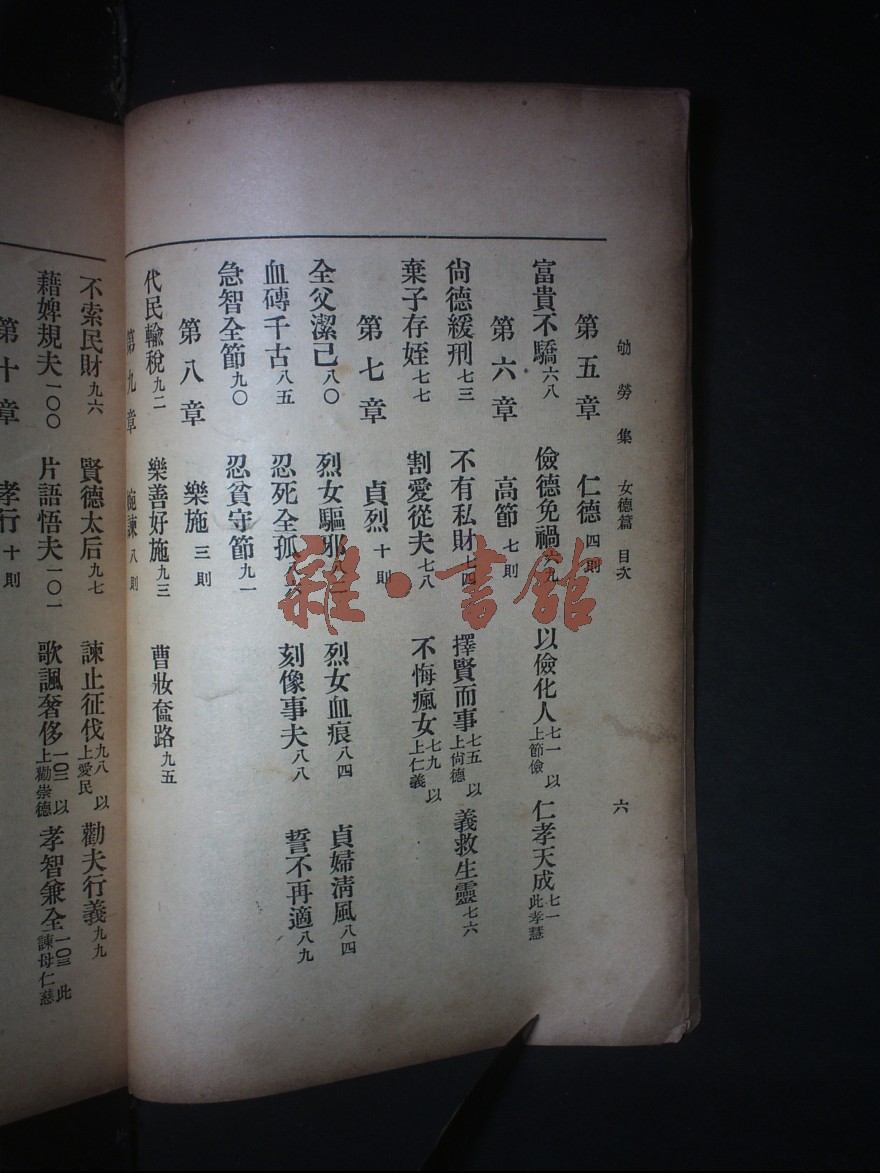 劬勞集 女德篇 目次 六
第五章 仁德 四則
富貴不驕六八 儉德免禍六九 以儉化人七一以上節儉 仁孝天成七一此孝慧
第六章 高節 七則
尙德緩刑七三 不有私財七四 擇賢而事七五以上尙德 義救生靈七六
棄子存姪七七 割愛從夫七八 不悔瘋女七九以上仁義
第七章 貞烈 十則
全父潔己八〇 烈女驅邪八二 烈女血痕八四 貞婦淸風八四
血磚千古八五 忍死全孤八六 刻像事夫八八 誓不再適八九
急智全節九〇 忍貧守節九一
第八章 樂施 三則
代民輸稅九二 樂善好施九三 曹妝奩路九五
第九章 婉諫 八則
不索民財九六 賢德太后九七 諫止征伐九八以上愛民 勸夫行義九九
藉婢規夫一〇〇 片語悟夫一〇一 歌諷奢侈一〇二以上勸崇德 孝智兼全一〇三此諫母仁慈
第十章 孝行 十則
雜·書館